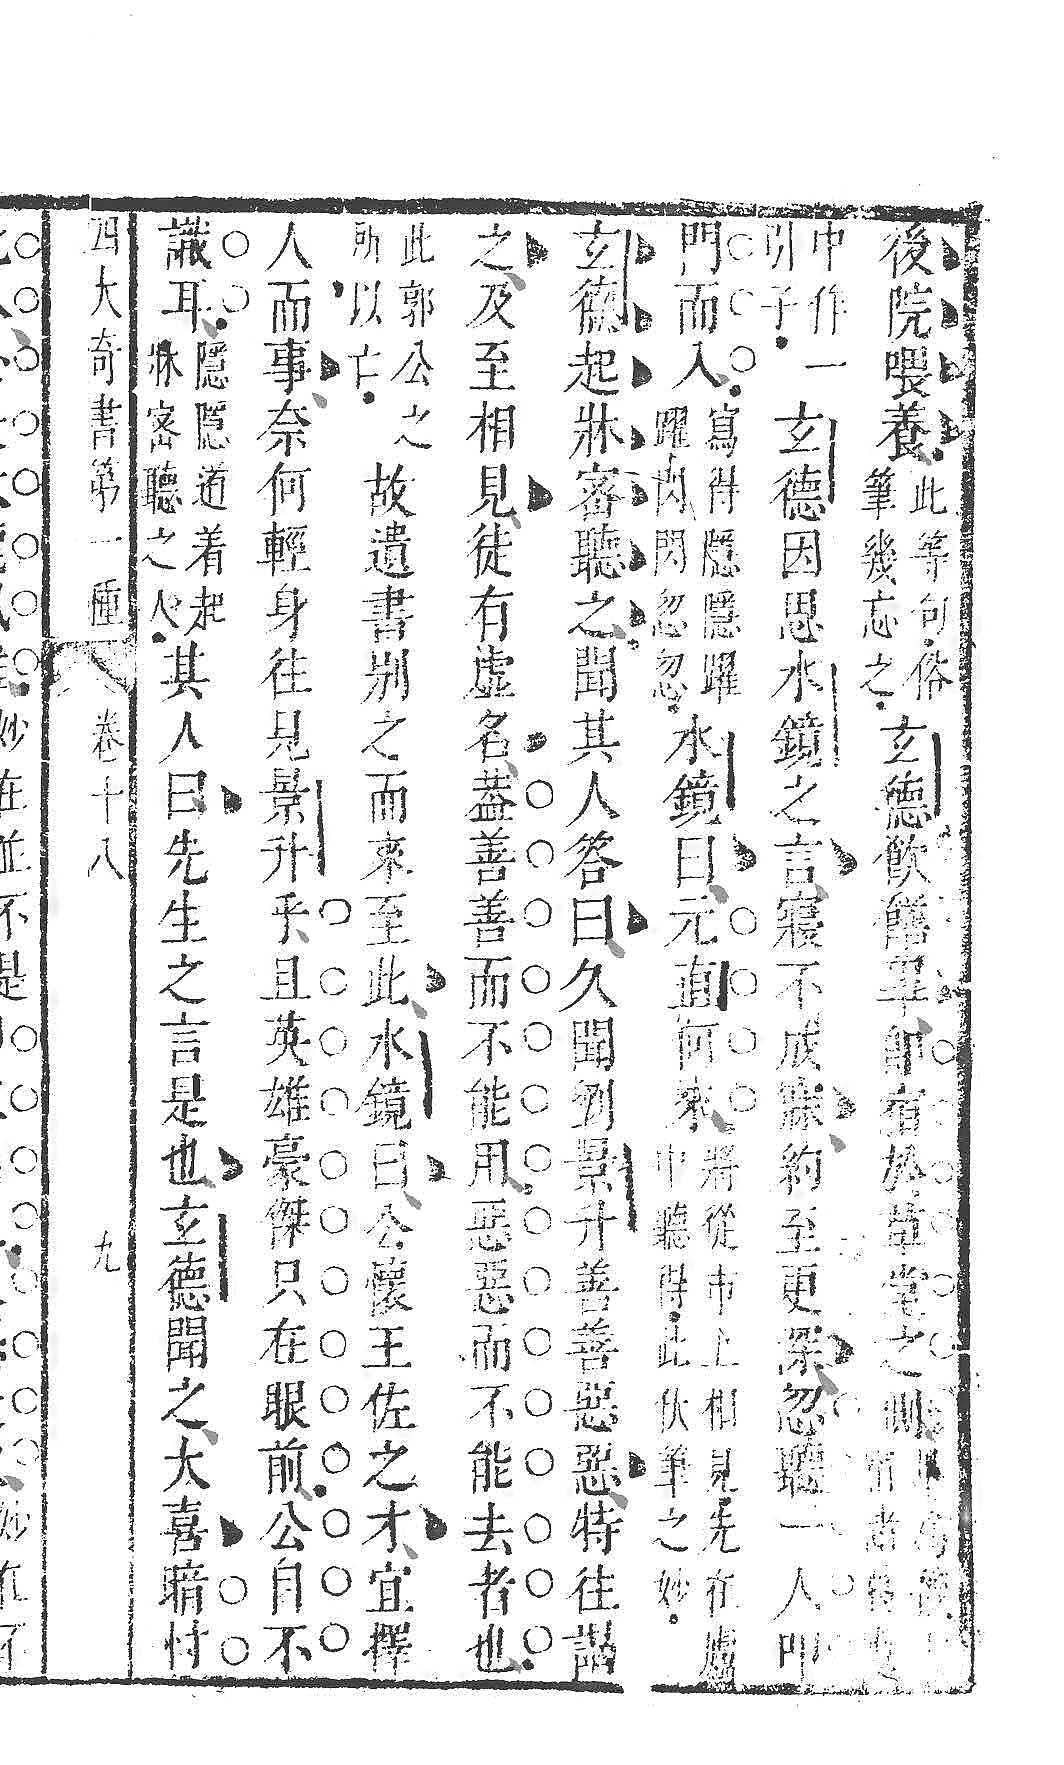 後院喂養此等句俗筆幾忘之玄德飲饍畢卽宿於草堂之側
中作一引子玄德因思水鏡之言寢不成寐約至更深忽聽一人叩
門而入寫得隱隱躍躍閃閃忽忽水鏡曰元直何來將從市上相見先在廬中聽得此伏筆之妙
玄德起牀密聽之聞其人答曰久聞劉景升善善惡惡特往謁
之及至相見徒有虛名葢善善而不能用惡惡而不能去者也
此郭公之所以亡故遺書別之而來至此水鏡曰公懷王佐之才宜擇
人而事奈何輕身往見景升乎且英雄豪傑只在眼前公自不
識耳隱隱道着起牀密聽之人其人曰先生之言是也玄德聞之大喜暗忖
四大奇書第一種 卷十八 九